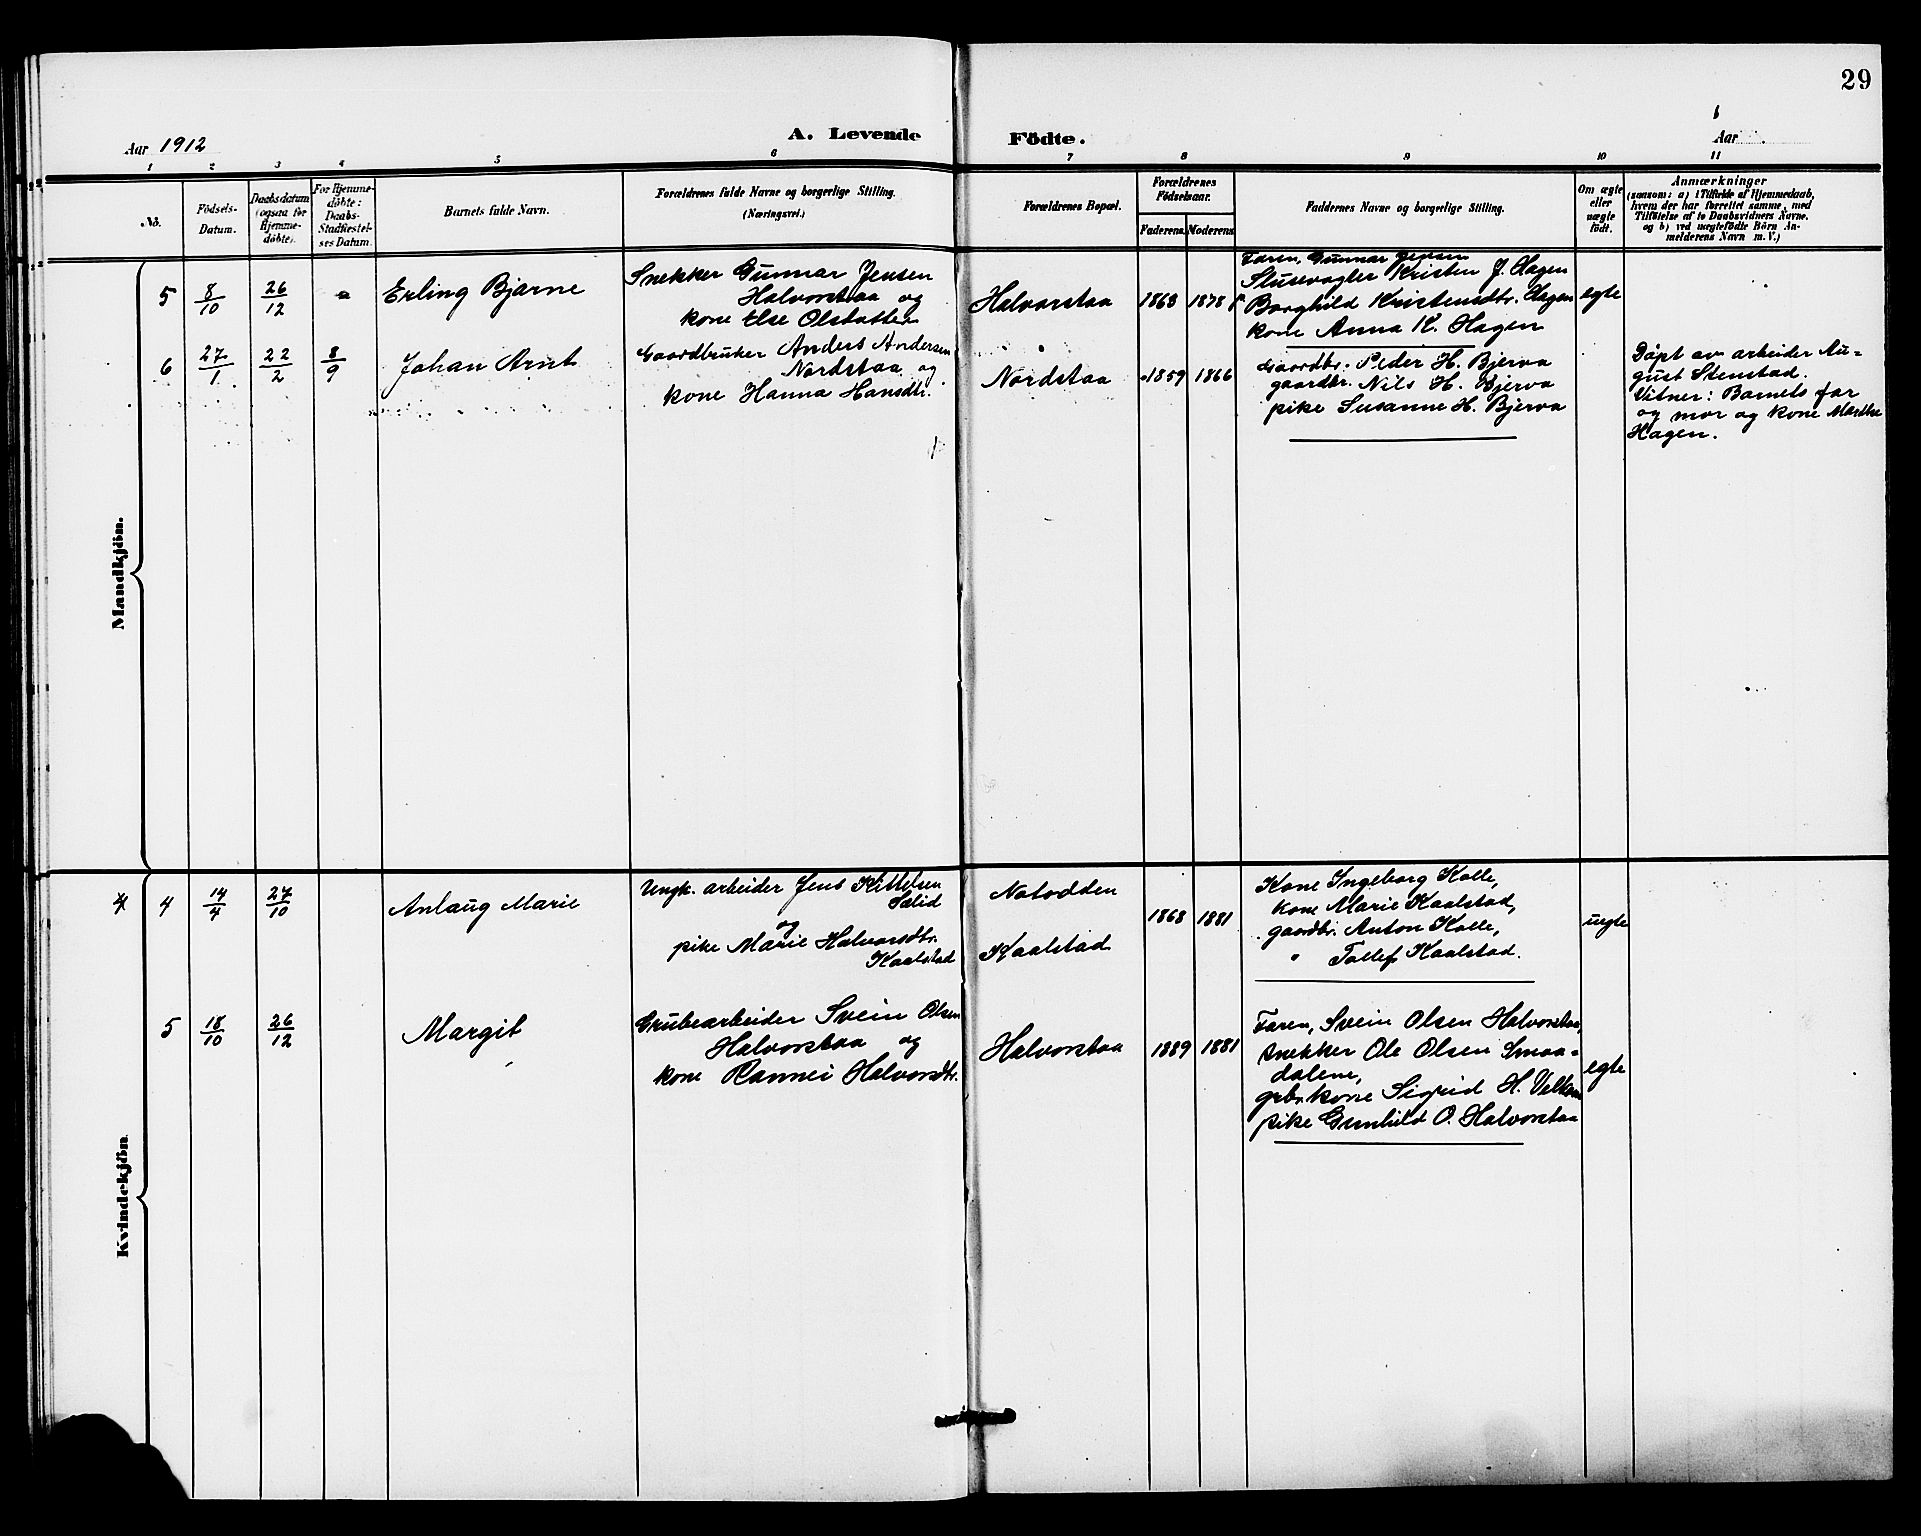 29
A. Levende Födte.
Aar 1912
Aar
1 2 3 4 5 6 7 8 9 10 11
No.
Födsels-
Datum.
Daabsdatum
(ogsaa for
Hjemme-
döbte).
For Hjemme-
döbte:
Daabs-
Stadfæstel-
ses Datum.
Barnets fulde Navn.
Forældrenes fulde Navne og borgerlige Stilling.
(Næringsvei.)
Forældrenes Bopæl.
Forældrenes
Födselsaar.
Faderens. Moderens.
Faddernes Navne og borgerlige Stilling.
Om ægte
eller
uægte
födt.
Anmærkninger
(saasom: a) i Tilfælde af Hjemmedaab,
hvem der har forrettet samme, med
Tilföielse af to Daabsvidners Navne.
og b) ved uægtefödte Börn An-
melderens Navn m. V.)
Mandkjön.
5
8/10
26/12
-
Erling Bjarne
Snekker Gunnar Jensen
Halvorstaa og
kone Else Olsdatter
Halvorstaa
1868 1878
Faren, Gunnar Jensen
Slusevogter Kristen J. Hagen
Borghild Kristensdtr. Hagen
kone Anna K. Hagen
egte
6
27/1
22/2
8/9
Johan Arnt
Gaardbruker Anders Andersen
Nordstaa og
kone Hanna Hansdtr.
Nordstaa
1859 1866
Gaardbr. Peder H. Bjerva
gaardbr. Nils H. Bjerva
pike Susanne H. Bjerva
Döpt av arbeider Au-
gust Stenstad.
Vitner: Barnets far
og mor og kone Marthe
Hagen.
Kvindekjön.
4
14/4
27/10
Anlaug Marie
Ungk. arbeider Jens Kittelsen
Sælid
og
pike Marie Halvorsdtr.
Kaalstad
Notodden
Kaalstad
1868 1881
Kone Ingeborg Kolle,
kone Marie Kaalstad,
gaardbr. Anton Kolle,
" Tollef Kaalstad.
uegte
5
18/10
26/12
Margit
Grubearbeider Svein Olsen
Halvorstaa og
kone Rannei Halvorsdtr.
Halvorstaa
1889 1881
Faren, Svein Olsen Halvorstaa,
snekker Ole Olsen Smaa-
dalene,
grbr. kone Sigrid H.
pike Gunhild O. Halvorstaa
egte